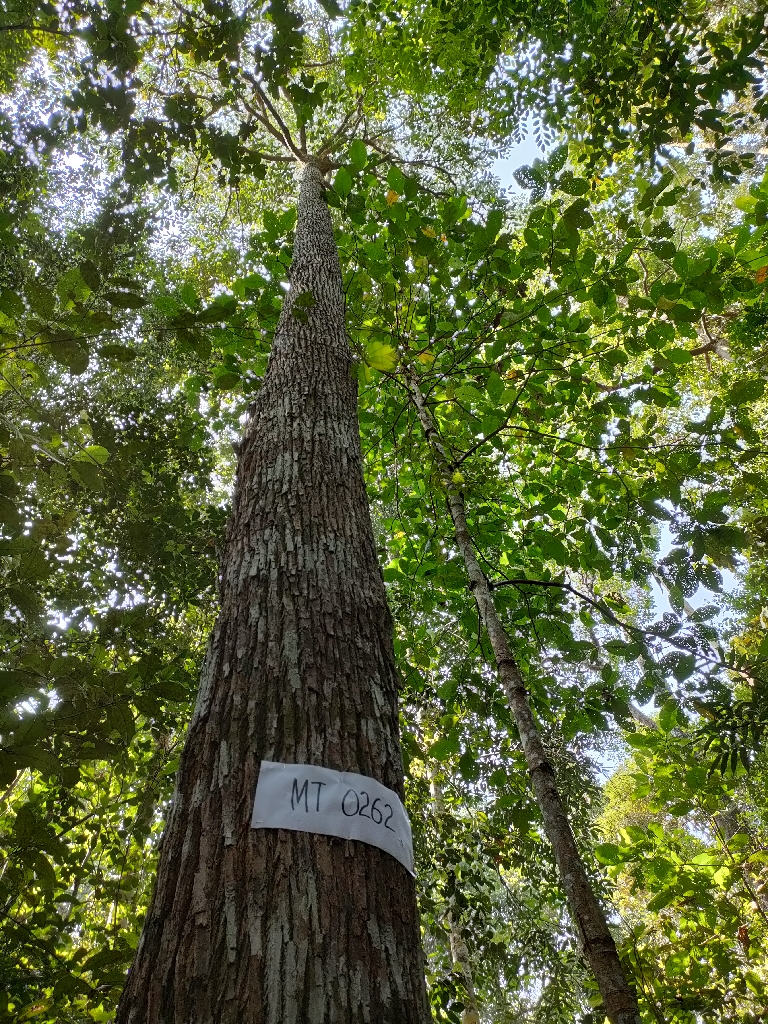 MT 0262